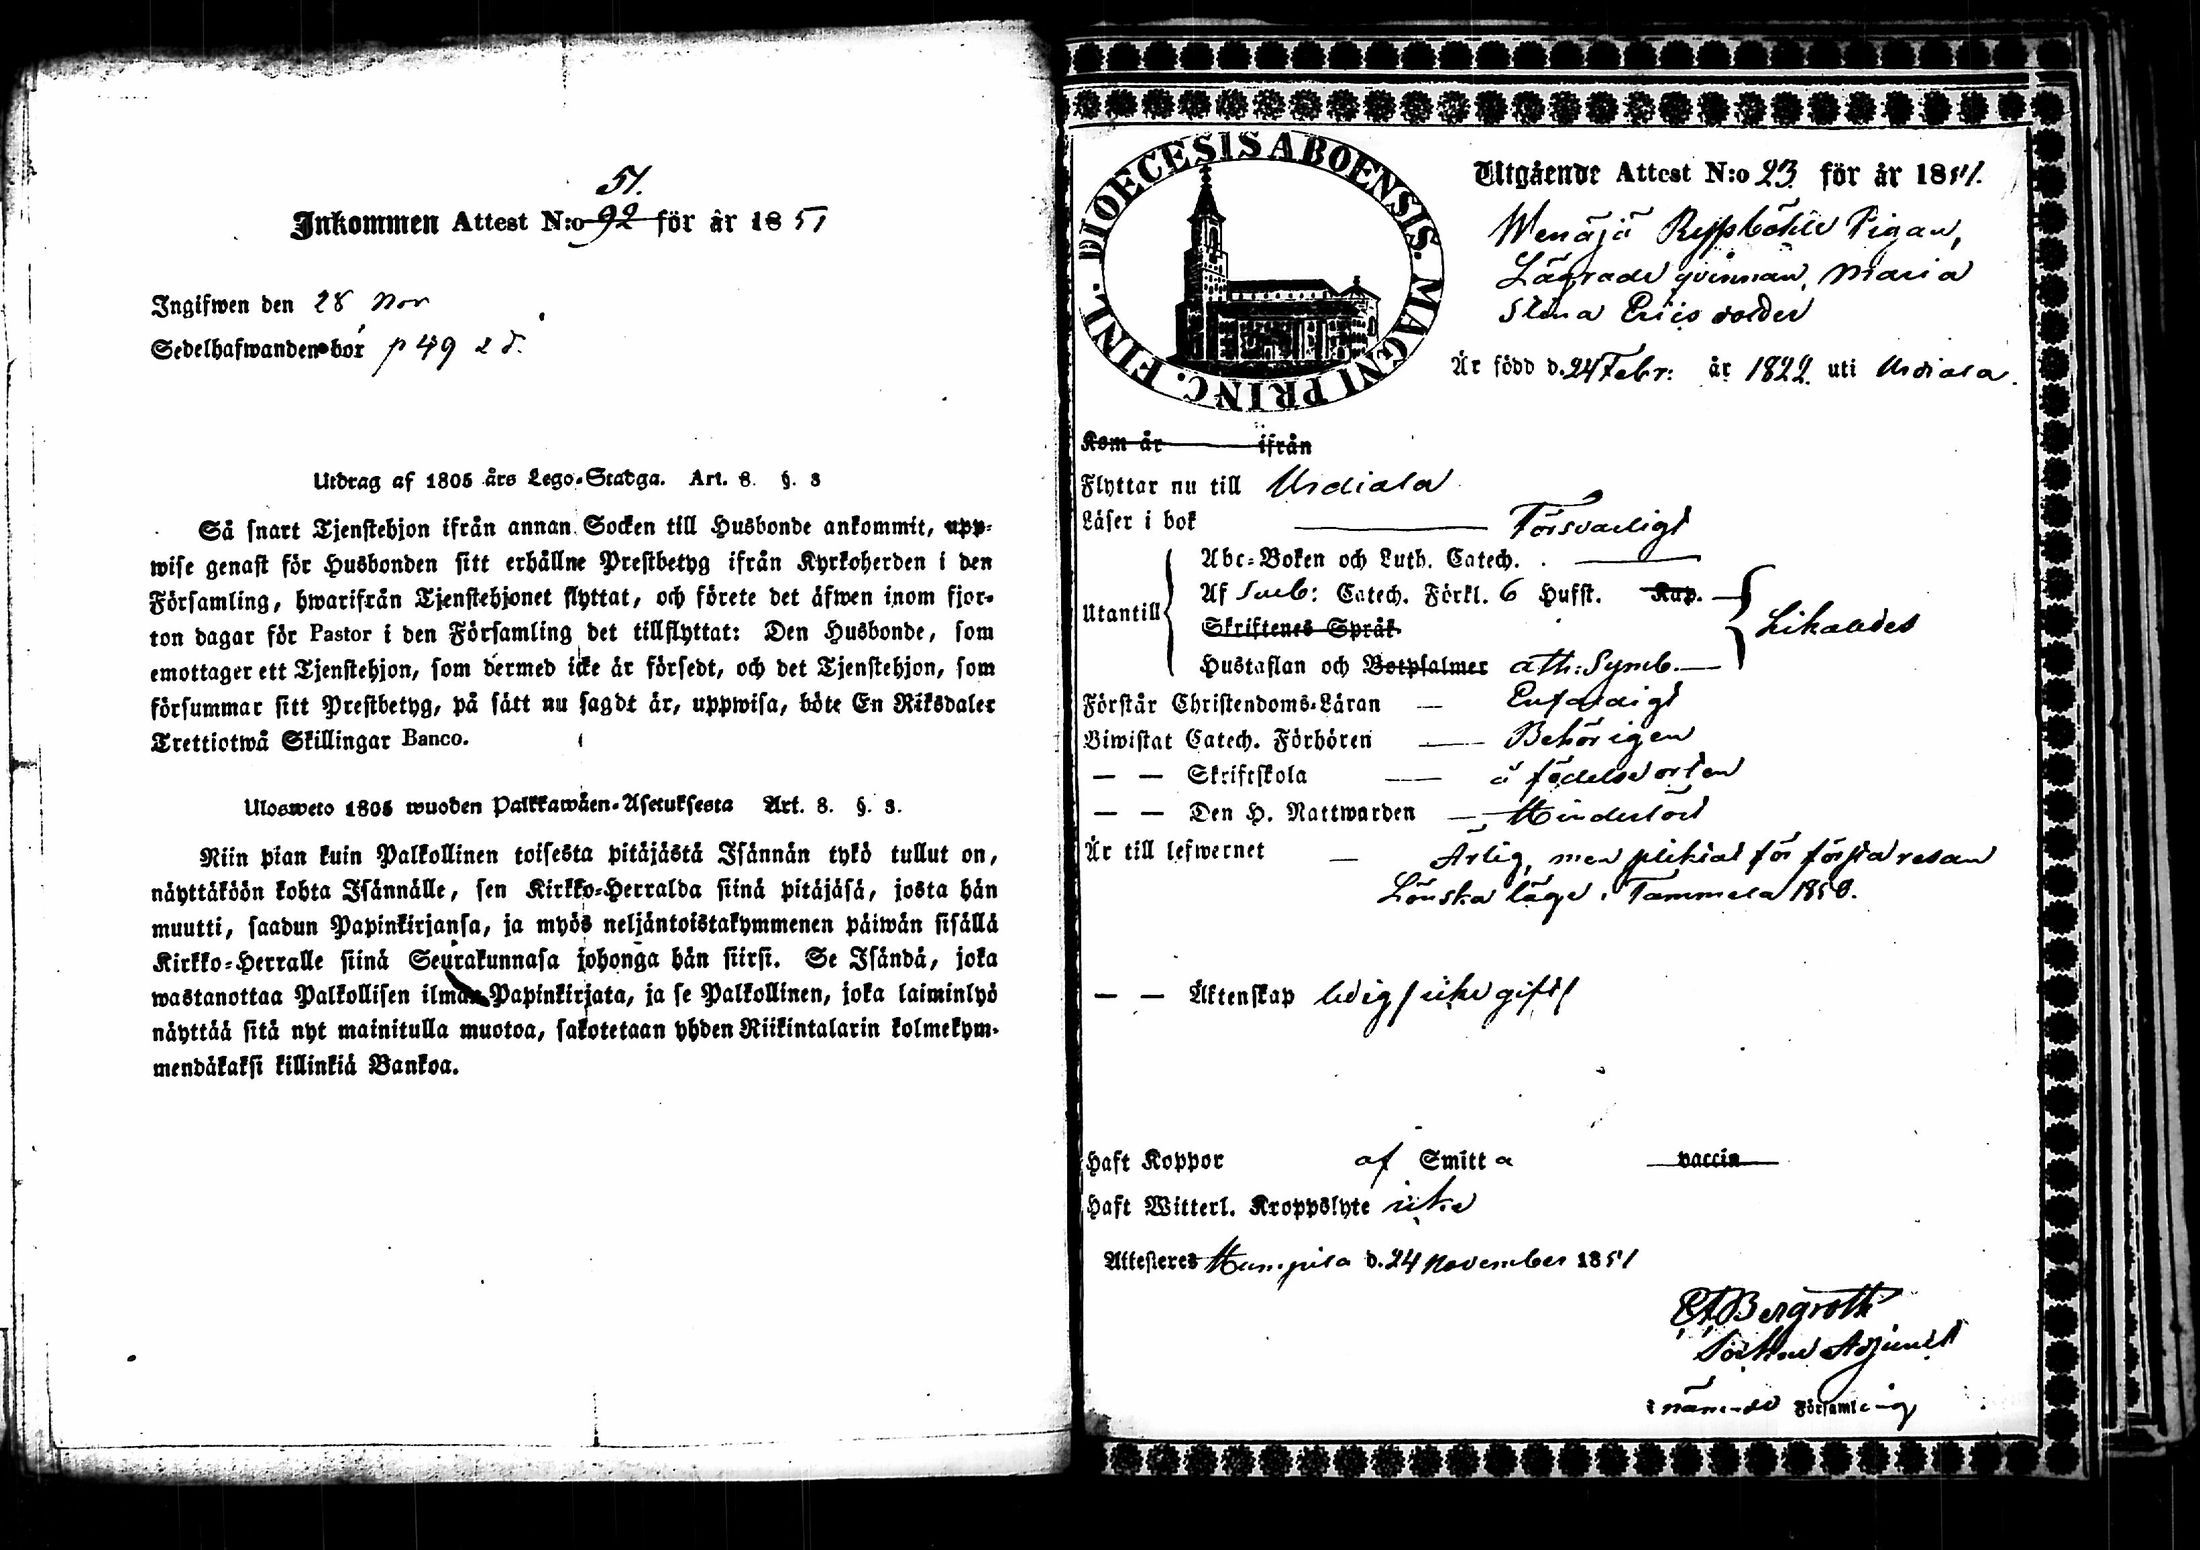 51.
Inkommen Attest N:o 92 för år 1851
Ingifwen den 28 Nov
Sedelhafwanden bor p 49 2 d.
Utdrag af 1805 års Lego-Stadga. Art. 8. §. 3
Så snart Tjenstehjon ifrån annan Socken till Husbonde ankommit, upp-
wise genast för Husbonden sitt erhållne Prestbetyg ifrån Kyrkoherden i den
Församling, hwarifrån Tjenstehjonet flyttat, och förete det äfwen inom fjor-
ton dagar för Pastor i den Församling det tillflyttat: Den Husbonde, som
emottager ett Tjenstehjon, som dermed icke är försedt, och det Tjenstehjon, som
försummar sitt Prestbetyg, på sätt nu sagdt är, uppwisa, böte En Riksdaler
Trettiotwå Skillingar Banco.
Ulosweto 1805 wuoden Palkkawäen-Asetuksesta Art. 8. §. 3.
Niin pian kuin Palkollinen toisesta pitäjästä Isännän tykö tullut on,
näyttäköön kohta Isännälle, sen Kirkko-Herralda siinä pitäjäsä, josta hän
muutti, saadun Papinkirjansa, ja myös neljäntoistakymmenen päiwän sisällä
Kirkko-Herralle siinä Seurakunnasa johonga hän siirsi. Se Isändä, joka
wastanottaa Palkollisen ilman Papinkirjata, ja se Palkollinen, joka laiminlyö
näyttää sitä nyt mainitulla muotoa, sakotetaan yhden Riikintalarin kolmekym-
mendäkaksi killinkiä Bankoa.
DIOECESIS ABOENSIS. MAGNI PRINC. FINL.
Utgående Attest N:o 23 för år 1851.
Wenäjä Pigan,
Lägrade qvinnan, Maria
Stina Ericsdotter
Är född d. 24 Febr: år 1822 uti Urdiala.
Kom år ifrån
Flyttar nu till Urdiala
Läser i bok Försvarligt
Abc-Boken och Luth. Catech.
Utantill Af Sveb: Catech. Förkl. 6 Hufst. Kap. Likaledes
Skriftenes Språk
Hustaflan och Botpsalmer ath: Symb.
Förstår Christendoms-Läran Enfaldigt
Biwistat Catech. Förhören Behörigen
— — Skriftskola å födelseorten
— — Den H. Nattwarden Hindertört
Är till lefwernet Ärlig, men pliktat för första resan
Lönska läge i Tammela 1850.
— — Äktenskap ledig (icke gift)
Haft Koppor af Smitta vaccin
Haft Witterl. Kroppslyte icke
Attesteres Humpila d. 24 November 1851
Bergroth
Adjunct
i nämnde Församling